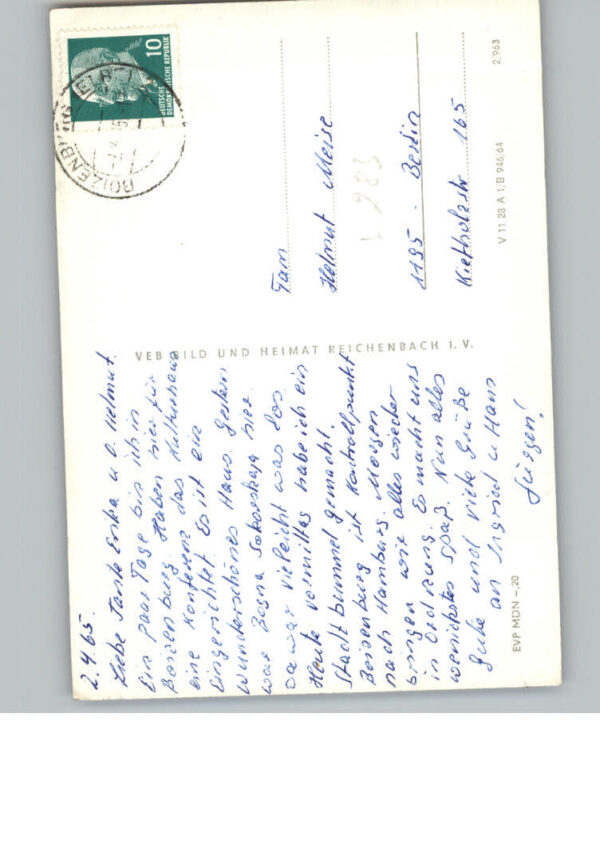 2.4.65.
Liebe Tante Erika u. O. Helmut.
Ein paar Tage bin ich in
Boizenburg. Haben hier für
eine Konferenz das Kulturhaus
eingerichtet. Es ist ein
wunderschönes Haus. Gestern
war Bosna hier.
Da war vieleicht was los.
Heute vormittag habe ich ein
Stadtbummel gemacht.
Boizenburg ist Kontrollpunkt
nach Hamburg. Morgen
bringen wir alles wieder
in Ordnung. Es macht uns
wenichstens Spaß. Nun alles
gute und viele Grüße
an Ingrid u. Hans
Jürgen!
EVP MDN –,20
VEB BILD UND HEIMAT REICHENBACH I. V.
10
DEUTSCHE
DEMOKRATISCHE REPUBLIK
BOIZENBURG (ELBE)
Fam
Helmut Meise
1195 - Berlin
Kiefholzstr 165
V 11 28 A 1/B 946/64
2/963